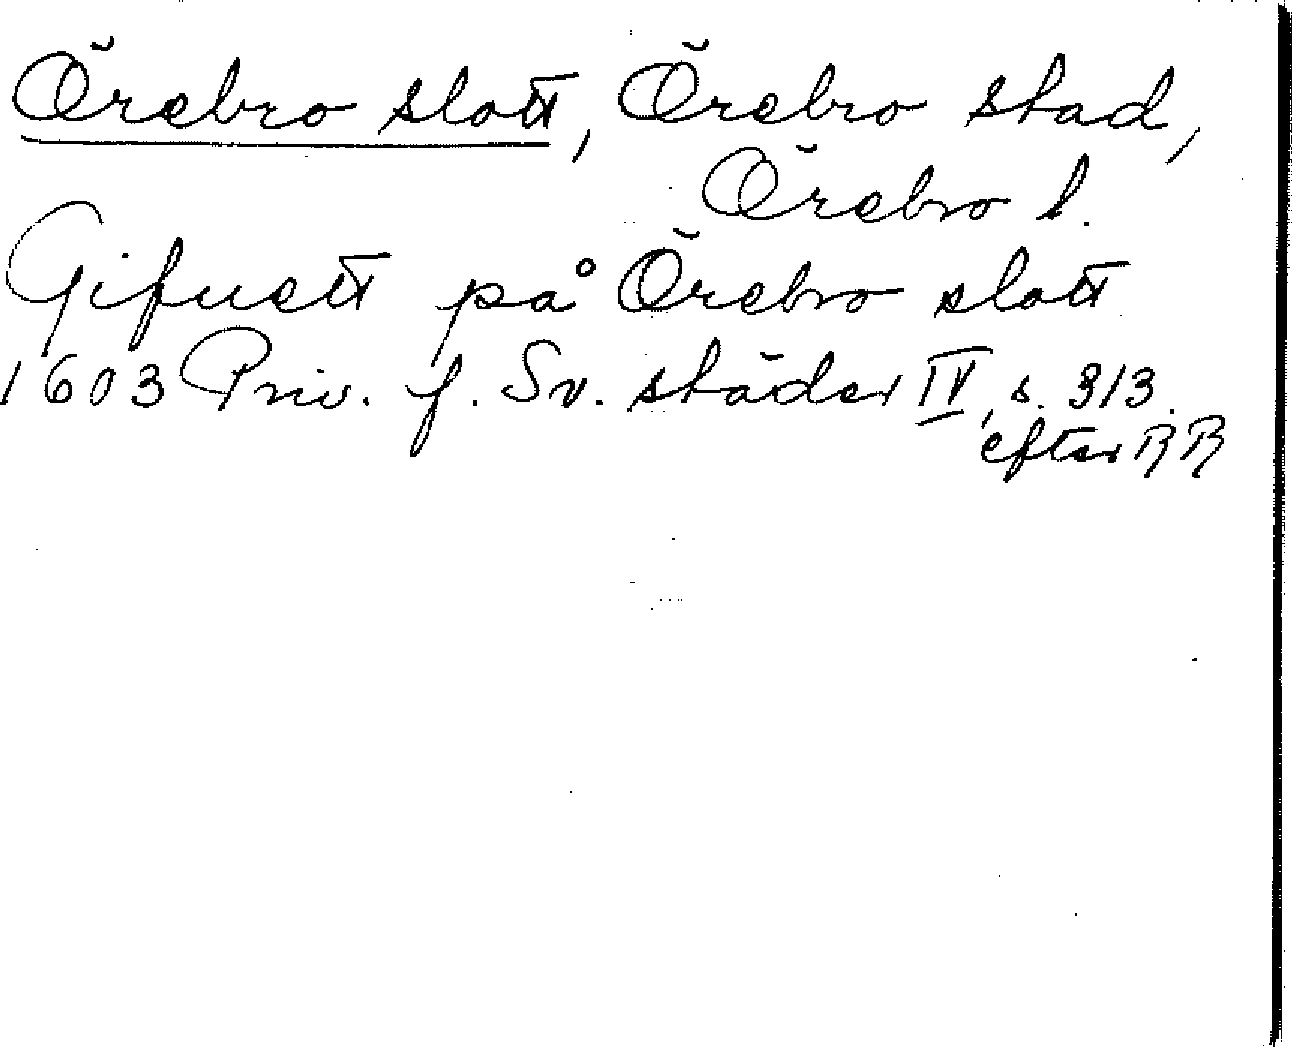 Örebro slott, Örebro stad,
Örebro l.
Gifuett på Örebro slott
1603 Priv. f. Sv. städer IV, s. 313.
efter RR